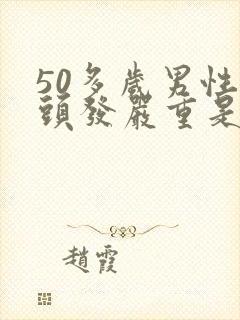 50多歲男性
頭發嚴重是
趙霞